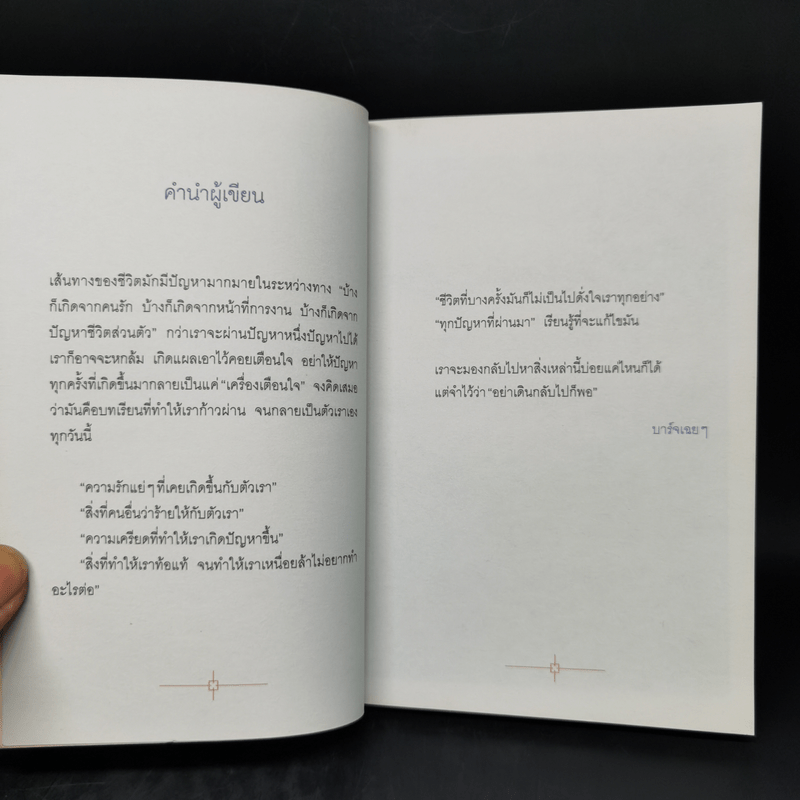 คำนำผู้เขียน
เส้นทางของชีวิตมักมีปัญหามากมายในระหว่างทาง "บ้าง
ก็เกิดจากคนรัก บ้างก็เกิดจากหน้าที่การงาน บ้างก็เกิดจาก
ปัญหาชีวิตส่วนตัว" กว่าเราจะผ่านปัญหาหนึ่งปัญหาไปได้
เราก็อาจจะหกล้ม เกิดแผลเอาไว้คอยเตือนใจ อย่าให้ปัญหา
ทุกครั้งที่เกิดขึ้นมากลายเป็นแค่ "เครื่องเตือนใจ" จงคิดเสมอ
ว่ามันคือบทเรียนที่ทำให้เราก้าวผ่าน จนกลายเป็นตัวเราเอง
ทุกวันนี้
"ความรักแย่ๆ ที่เคยเกิดขึ้นกับตัวเรา"
"สิ่งที่คนอื่นว่าร้ายให้กับตัวเรา"
"ความเครียดที่ทำให้เราเกิดปัญหาขึ้น"
"สิ่งที่ทำให้เราท้อแท้ จนทำให้เราเหนื่อยล้าไม่อยากทำ
อะไรต่อ"
"ชีวิตที่บางครั้งมันก็ไม่เป็นไปดั่งใจเราทุกอย่าง"
"ทุกปัญหาที่ผ่านมา" เรียนรู้ที่จะแก้ไขมัน
เราจะมองกลับไปหาสิ่งเหล่านี้บ่อยแค่ไหนก็ได้
แต่จำไว้ว่า "อย่าเดินกลับไปก็พอ"
บาร์จเฉยๆ